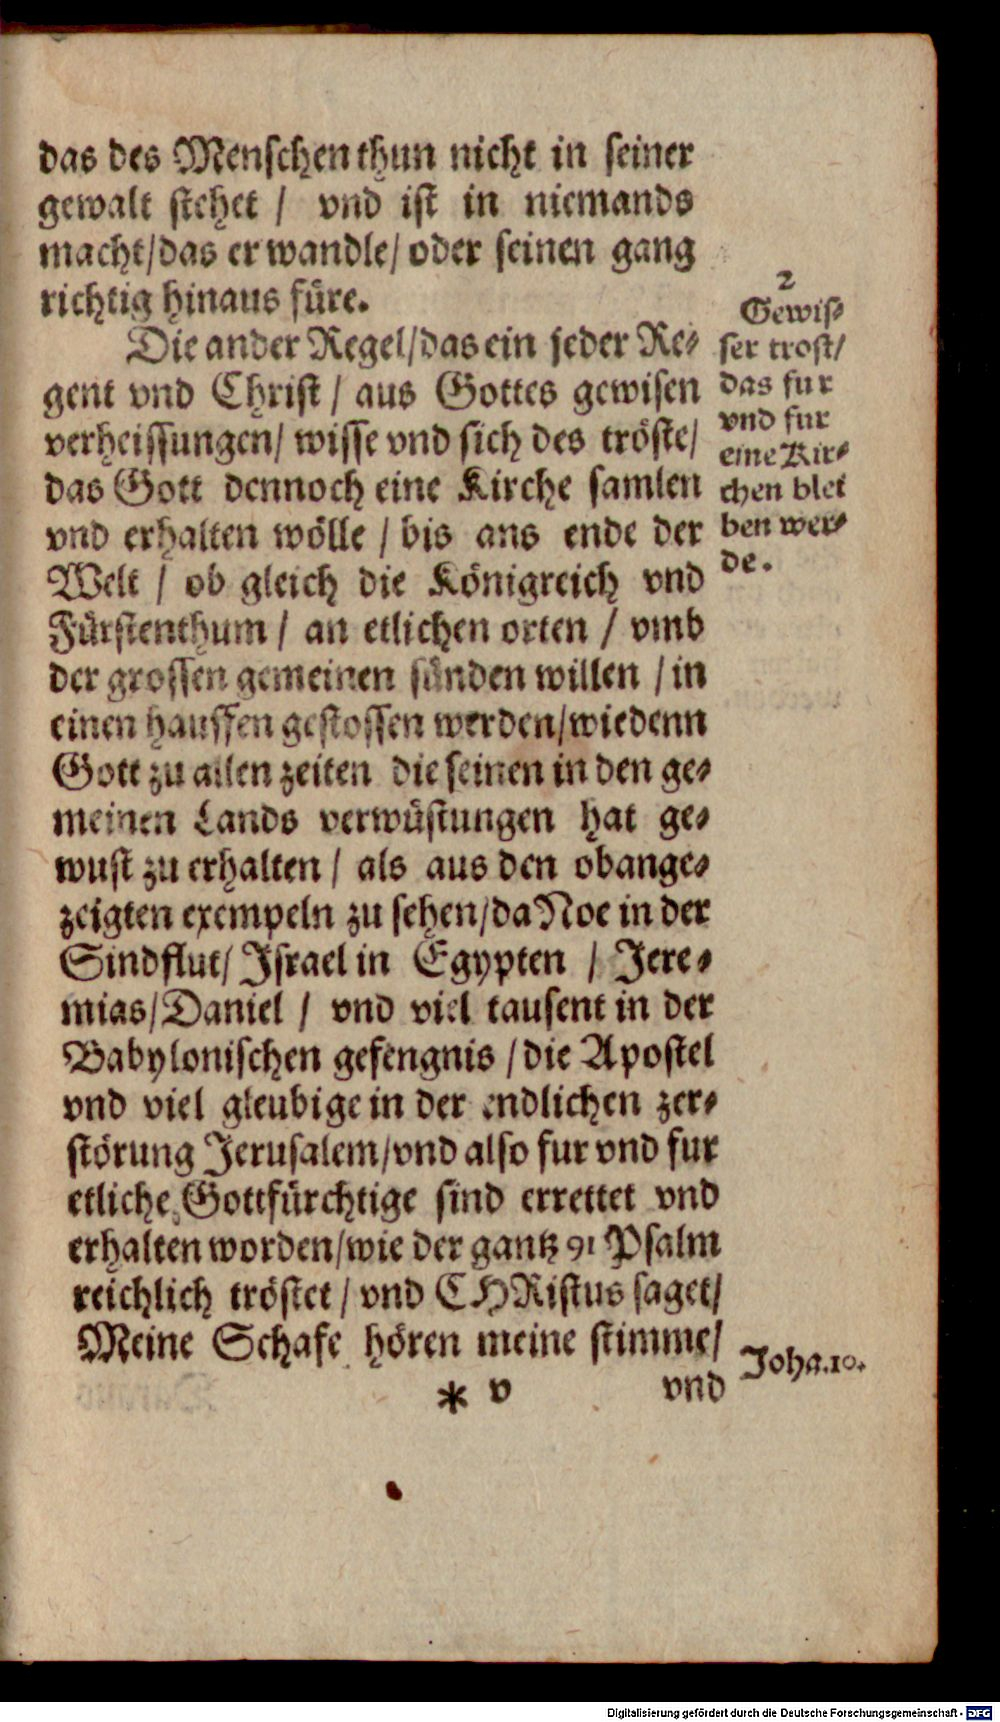 das des Menschen thun nicht in seiner
gewalt stehet / vnd ist in niemands
macht/das er wandle/ oder seinen gang
richtig hinaus füre.
Die ander Regel/das ein jeder Re-
gent vnd Christ / aus Gottes gewisen
verheissungen/ wisse vnd sich des tröste/
das Gott dennoch eine Kirche samlen
vnd erhalten wölle / bis ans ende der
Welt / ob gleich die Königreich vnd
Fürstenthum / an etlichen orten / vmb
der grossen gemeinen sünden willen / in
einen hauffen gestossen werden/wie denn
Gott zu allen zeiten die seinen in den ge-
meinen Lands verwüstungen hat ge-
wust zu erhalten / als aus den obange-
zeigten exempeln zu sehen/da Noe in der
Sindflut/ Israel in Egypten / Jere-
mias/Daniel / vnd viel tausent in der
Babylonischen gefengnis /die Apostel
vnd viel gleubige in der endlichen zer-
störung Jerusalem/vnd also fur vnd fur
etliche Gottfürchtige sind errettet vnd
erhalten worden/wie der gantz 91 Psalm
reichlich tröstet / vnd CHRistus saget/
Meine Schafe hören meine stimme/
* v vnd
2
Gewis-
ser trost/
das fur
vnd fur
eine Kir-
chen blei
ben wer-
de.
Joha.10.
Digitalisierung gefördert durch die Deutsche Forschungsgemeinschaft - DFG